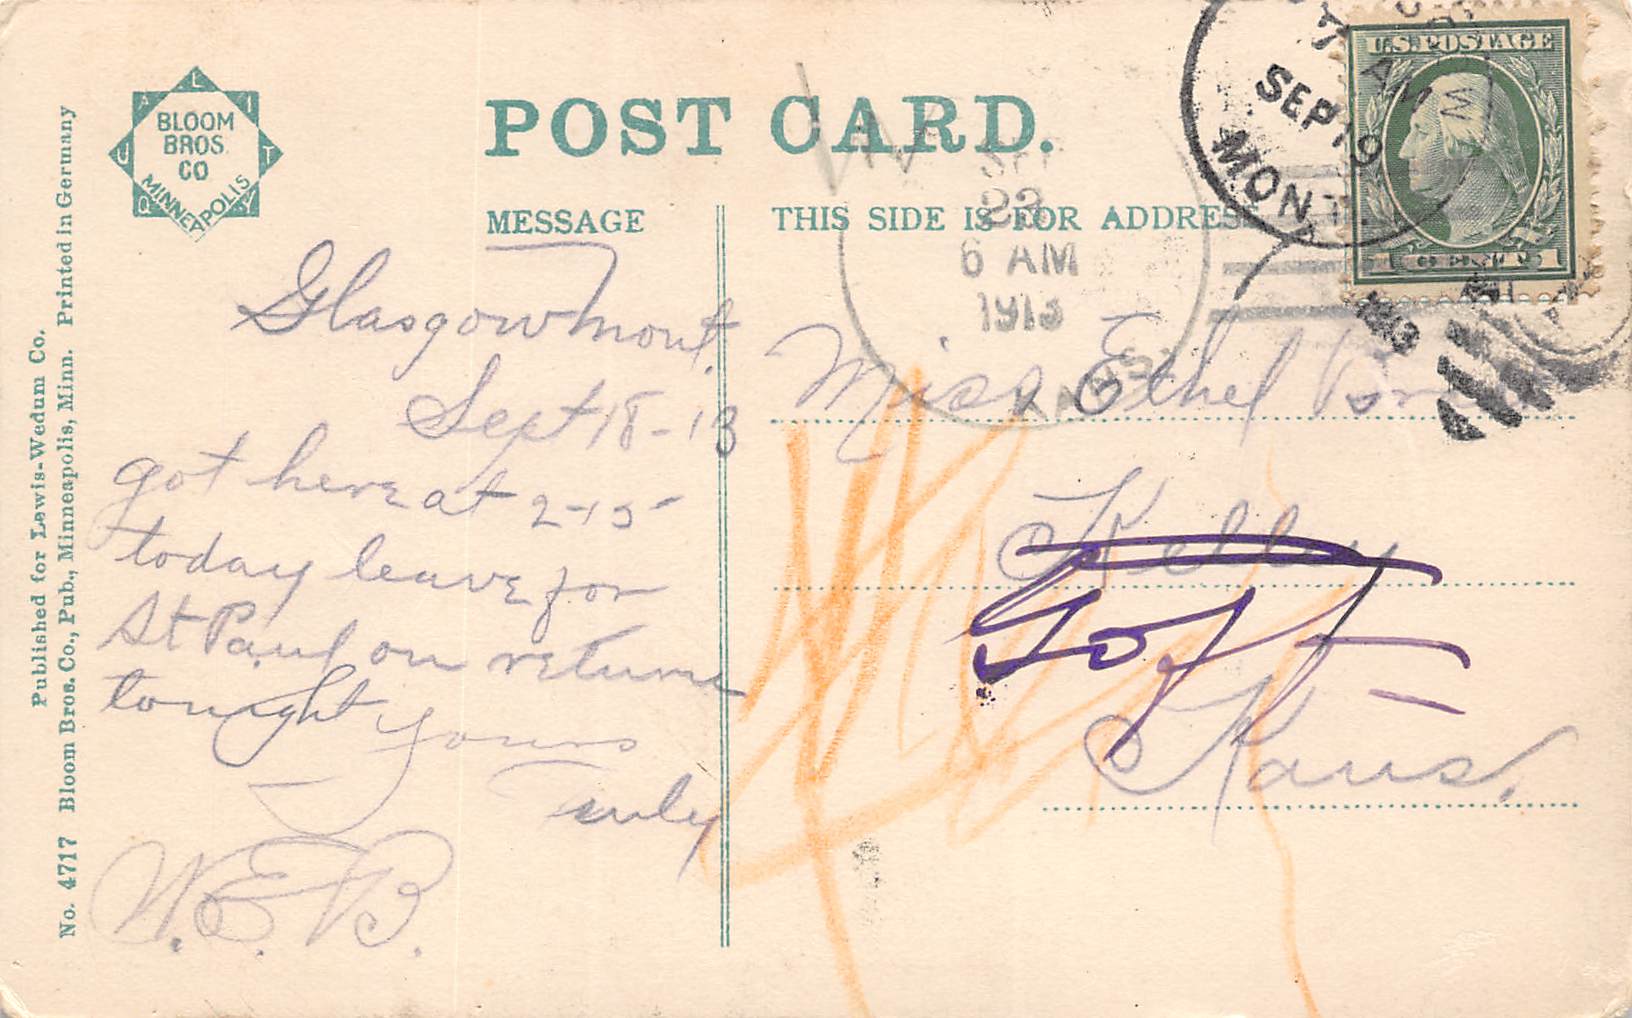 Published for Lewis-Wedum Co.
No. 4717 Bloom Bros. Co., Pub., Minneapolis, Minn. Printed in Germany
QUALITY
BLOOM
BROS.
CO
MINNEAPOLIS
POST CARD.
MESSAGE
THIS SIDE IS FOR ADDRESS
U.S. POSTAGE
7 AM
SEP 19
MONT.
1913
SEP
23
6 AM
1913
KANS.
Glasgow Mont.
Sept 18-13
got here at 2-15
today leave for
St Paul on return
tonight yours
Truly
W.E.B.
Miss Ethel
Kelly
Kans.